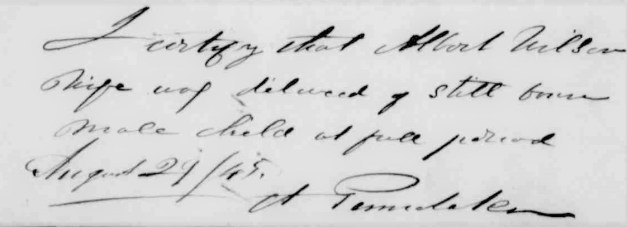 I certify that Albert Wilson
Wife was delivered of still born
male child at full period
August 29/45.